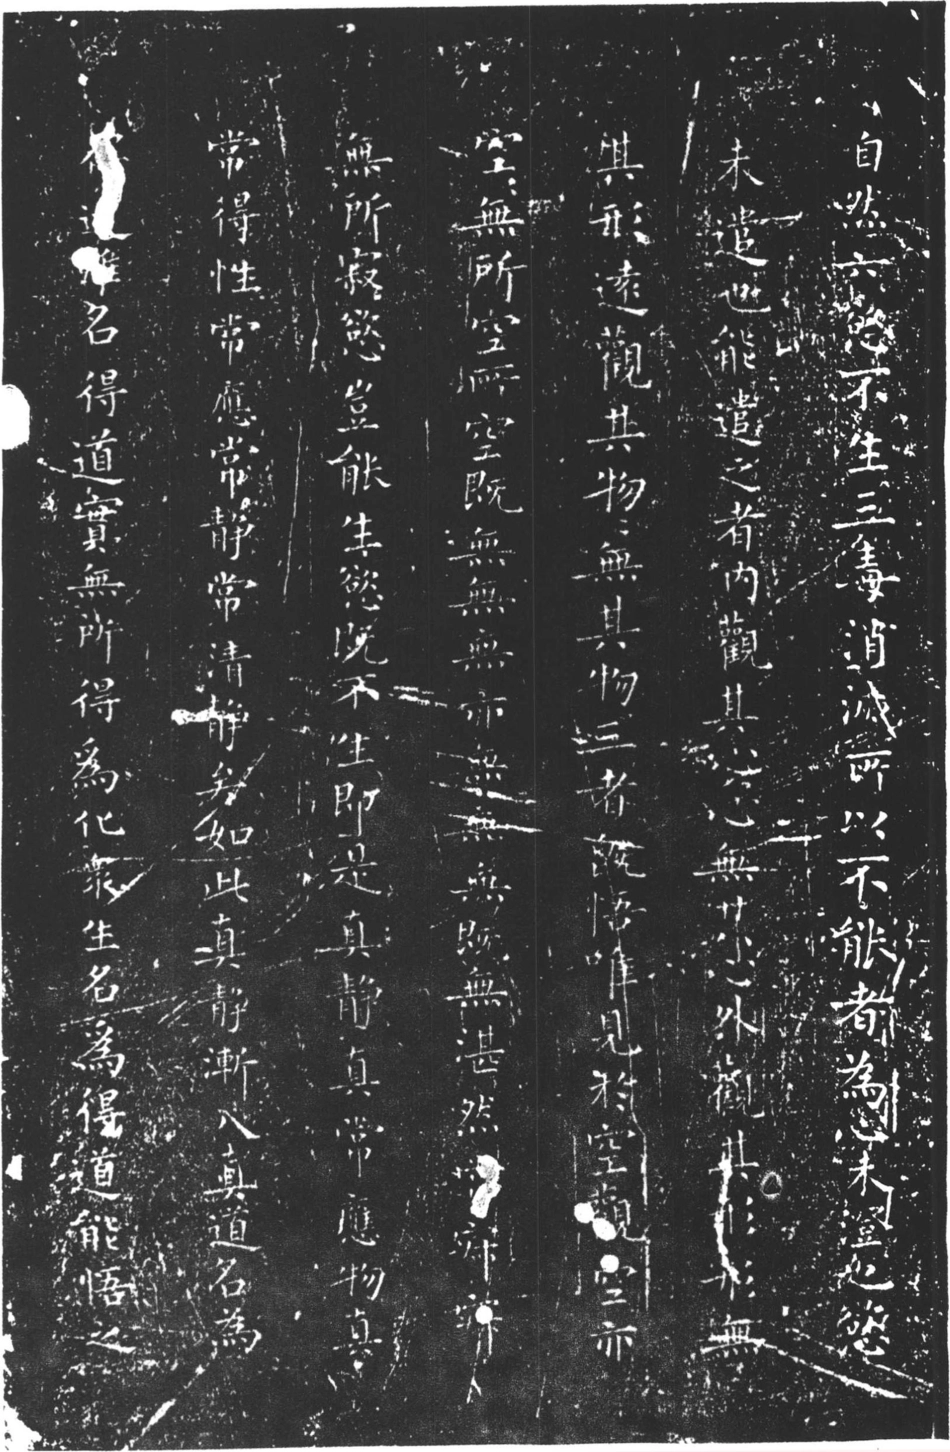 自然六慾不生三毒消滅所以不能者為心未澄也慾
未遣也能遣之者內觀其心心無其心外觀其形形無
其形遠觀其物物無其物三者既悟唯見於空觀空亦
空空無所空所空既無無無亦無無無既無湛然常寂寂
無所寂慾豈能生慾既不生即是真靜真常應物真
常得性常應常靜常清靜矣如此真靜漸入真道名為
得道雖名得道實無所得為化衆生名為得道能悟之